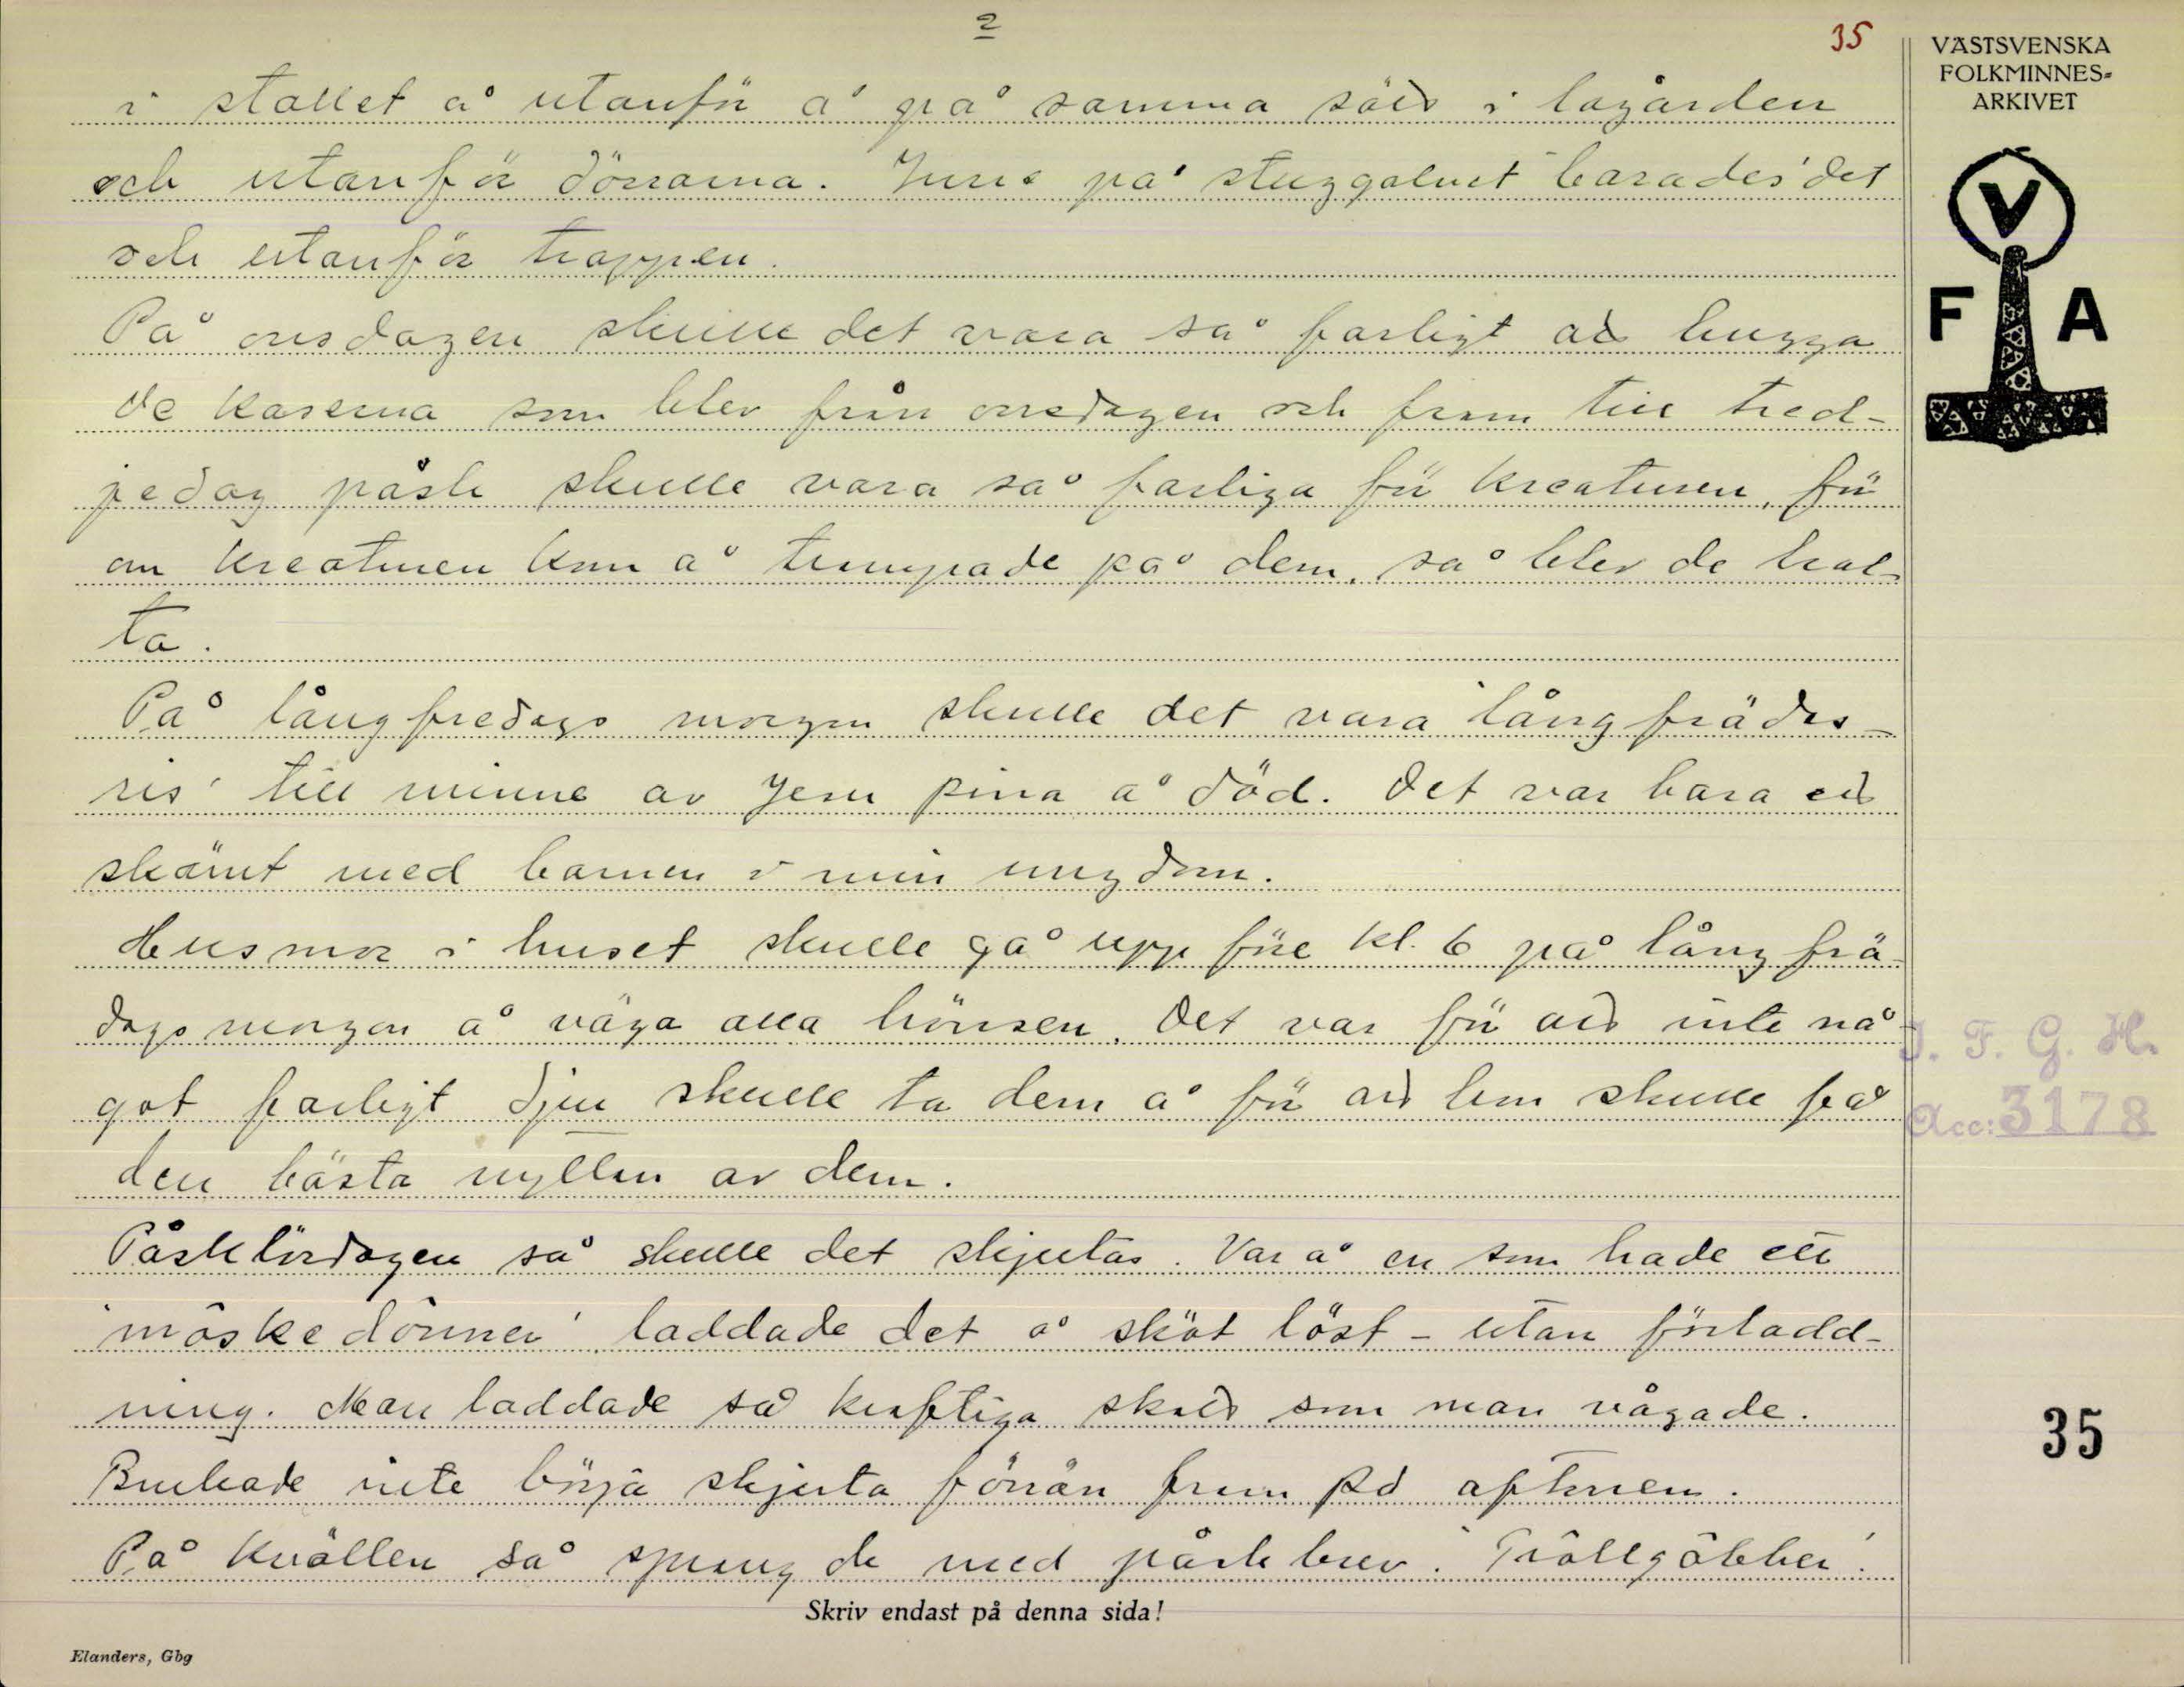 2
35
i stallet å utanför å på samma sätt i lagården
och utanför dörrarna. Inne på stuggolvet "barades" det
och utanför trappen.
På onsdagen skulle det vara så farligt att hugga
de kaserna som blev från onsdagen och fram till tred-
jedag påsk skulle vara så farliga för kreaturen, för
om kreaturen kom å trampade på dem, så blev de hal-
ta.
På långfredags morgon skulle det vara "långfrädes-
ris" till minne av Jesu pina å död. Det var bara ett
skämt med barnen i min ungdom.
Husmor i huset skulle gå upp före kl. 6 på långfrä-
dagsmorgon å väga alla hönsen. Det var för att inte nå-
got farligt djur skulle ta dem å för att hon skulle få
den bästa nyttan av dem.
Påsklördagen så skulle det skjutas. Var å en som hade ett
"måskedönner" laddade det å sköt löst - utan förladd-
ning. Man laddade så kraftiga skott som man vågade.
Brukade inte börja skjuta förrän fram på aftonen.
På kvällen så sprang de med påskbrev. "Trållgåbber".
Skriv endast på denna sida!
Elanders, Gbg
VÄSTSVENSKA
FOLKMINNES-
ARKIVET
V
F A
I. F. G. H.
Acc: 3178
35